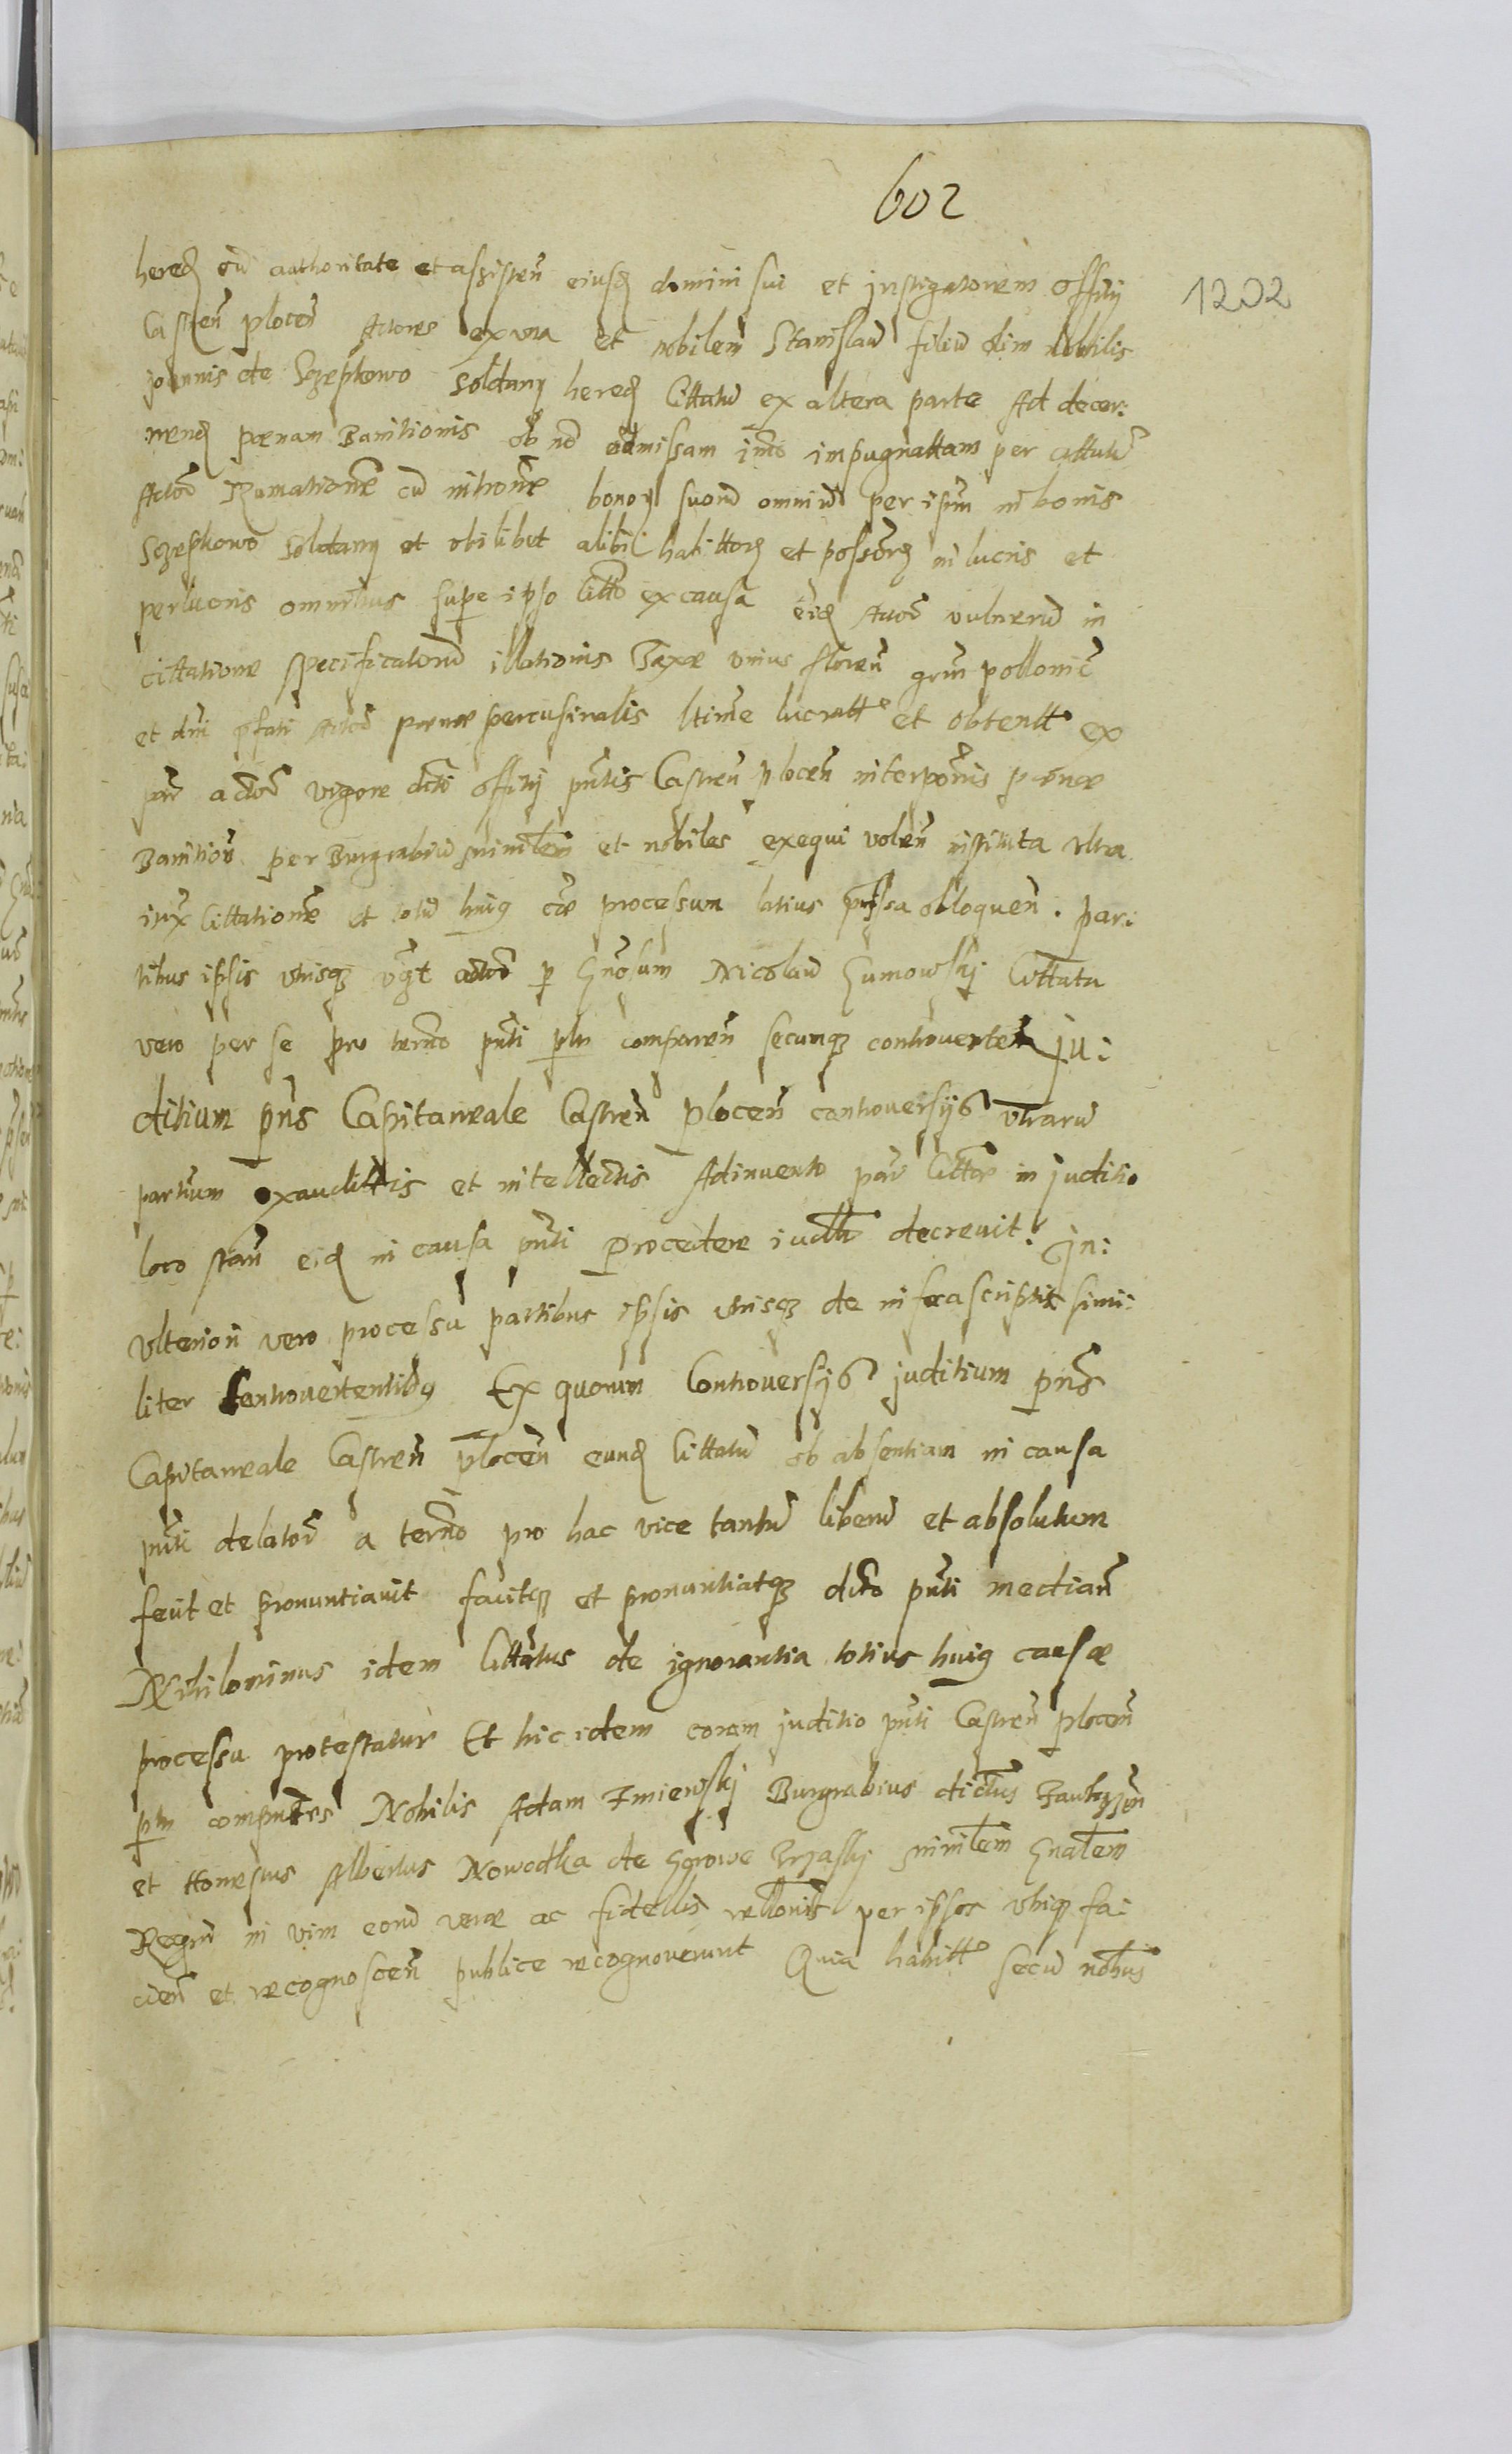 602
1202
hered cu authoritate et assisten eiusd domini sui et instigatorem offitij
Castren plocen Actores ex una et nobilem Stanislau filiu olim nobilis
joannis de Szepkowo Soldany hered Cittatu ex altera parte Ad decer:
nend pœnam Banitionis ob no admissam imo impugnattam per cittatu
Actor Rumatione cu bonor suoru omniu per ipsum in bonis
Szepkowo Soldany et ubilibet alibi habittor et possor in lucris et
perlucris omnibus super ipso citto ex causa eid Actor vulneru in
cittatione specificatoru illationis Taxæ unius floren grm pollonic
et dni pfati Actor pœnæ percusivalis ltime lucratt et obtentt ex
par actor vigore dcti offitij pntis Castren plocen interponis pœnæ
Banition per Burgrabiu ministlem et nobiles exequi volen instituta ultra
iux cittatione et totu huig cæ processum latius prssa obloquen. par:
tibus ipsis utrisq vgt actor p Gnosum Nicolau Gumowskj Cittatu
vero per se pro termo pnti plr comparen secumq controverten ju:
ditium pns Capitaneale Castren plocen controversijs utraru
partium exaudittis et intellectis Adinvento par Cittæ in juditio
loco stan eid in causa pnti procedere iudtr decrevit. jn:
ulteriori vero processu partibus ipsis utrisq de infrascriptis simi:
liter controvertentibus Ex quorum Controversijs juditium pns
Capitaneale Castren plocen eund Cittatu ob absentiam in causa
pnti delator a termo pro hac vice tantu liberu et absolutum
fecit et pronuntiavit facitq et pronuntiatq dcto pnti median
Nihilominus idem Cittatus de ignorantia totius huig causæ
processu protestatur Et hic idem coram juditio pnti Castren plocen
plr compntes Nobilis Adam Zmiewskj Burgrabius dictus
et Honestus Albertus Nowodka de Gorowe ministlem Gnalem
Regni in vim eoru veræ ac fidellis rellonis per ipsos utrisq fa:
cien et recognoscen publice recognoverunt Quia habitt secu nobilibus